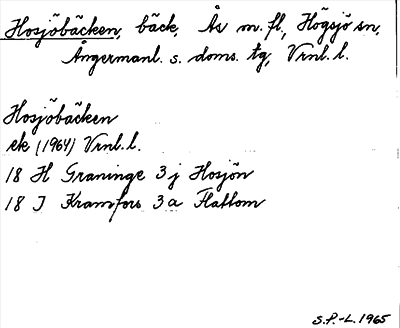 Hosjöbäcken, bäck, Ås m.fl., Högsjö sn,
Ångermanl. s. doms. tg, Vrnl. l.
Hosjöbäcken
ek (1964) Vrnl. l.
18 H Graninge 3 j Hosjön
18 I Kramfors 3 a Flattom
S.P.-L. 1965